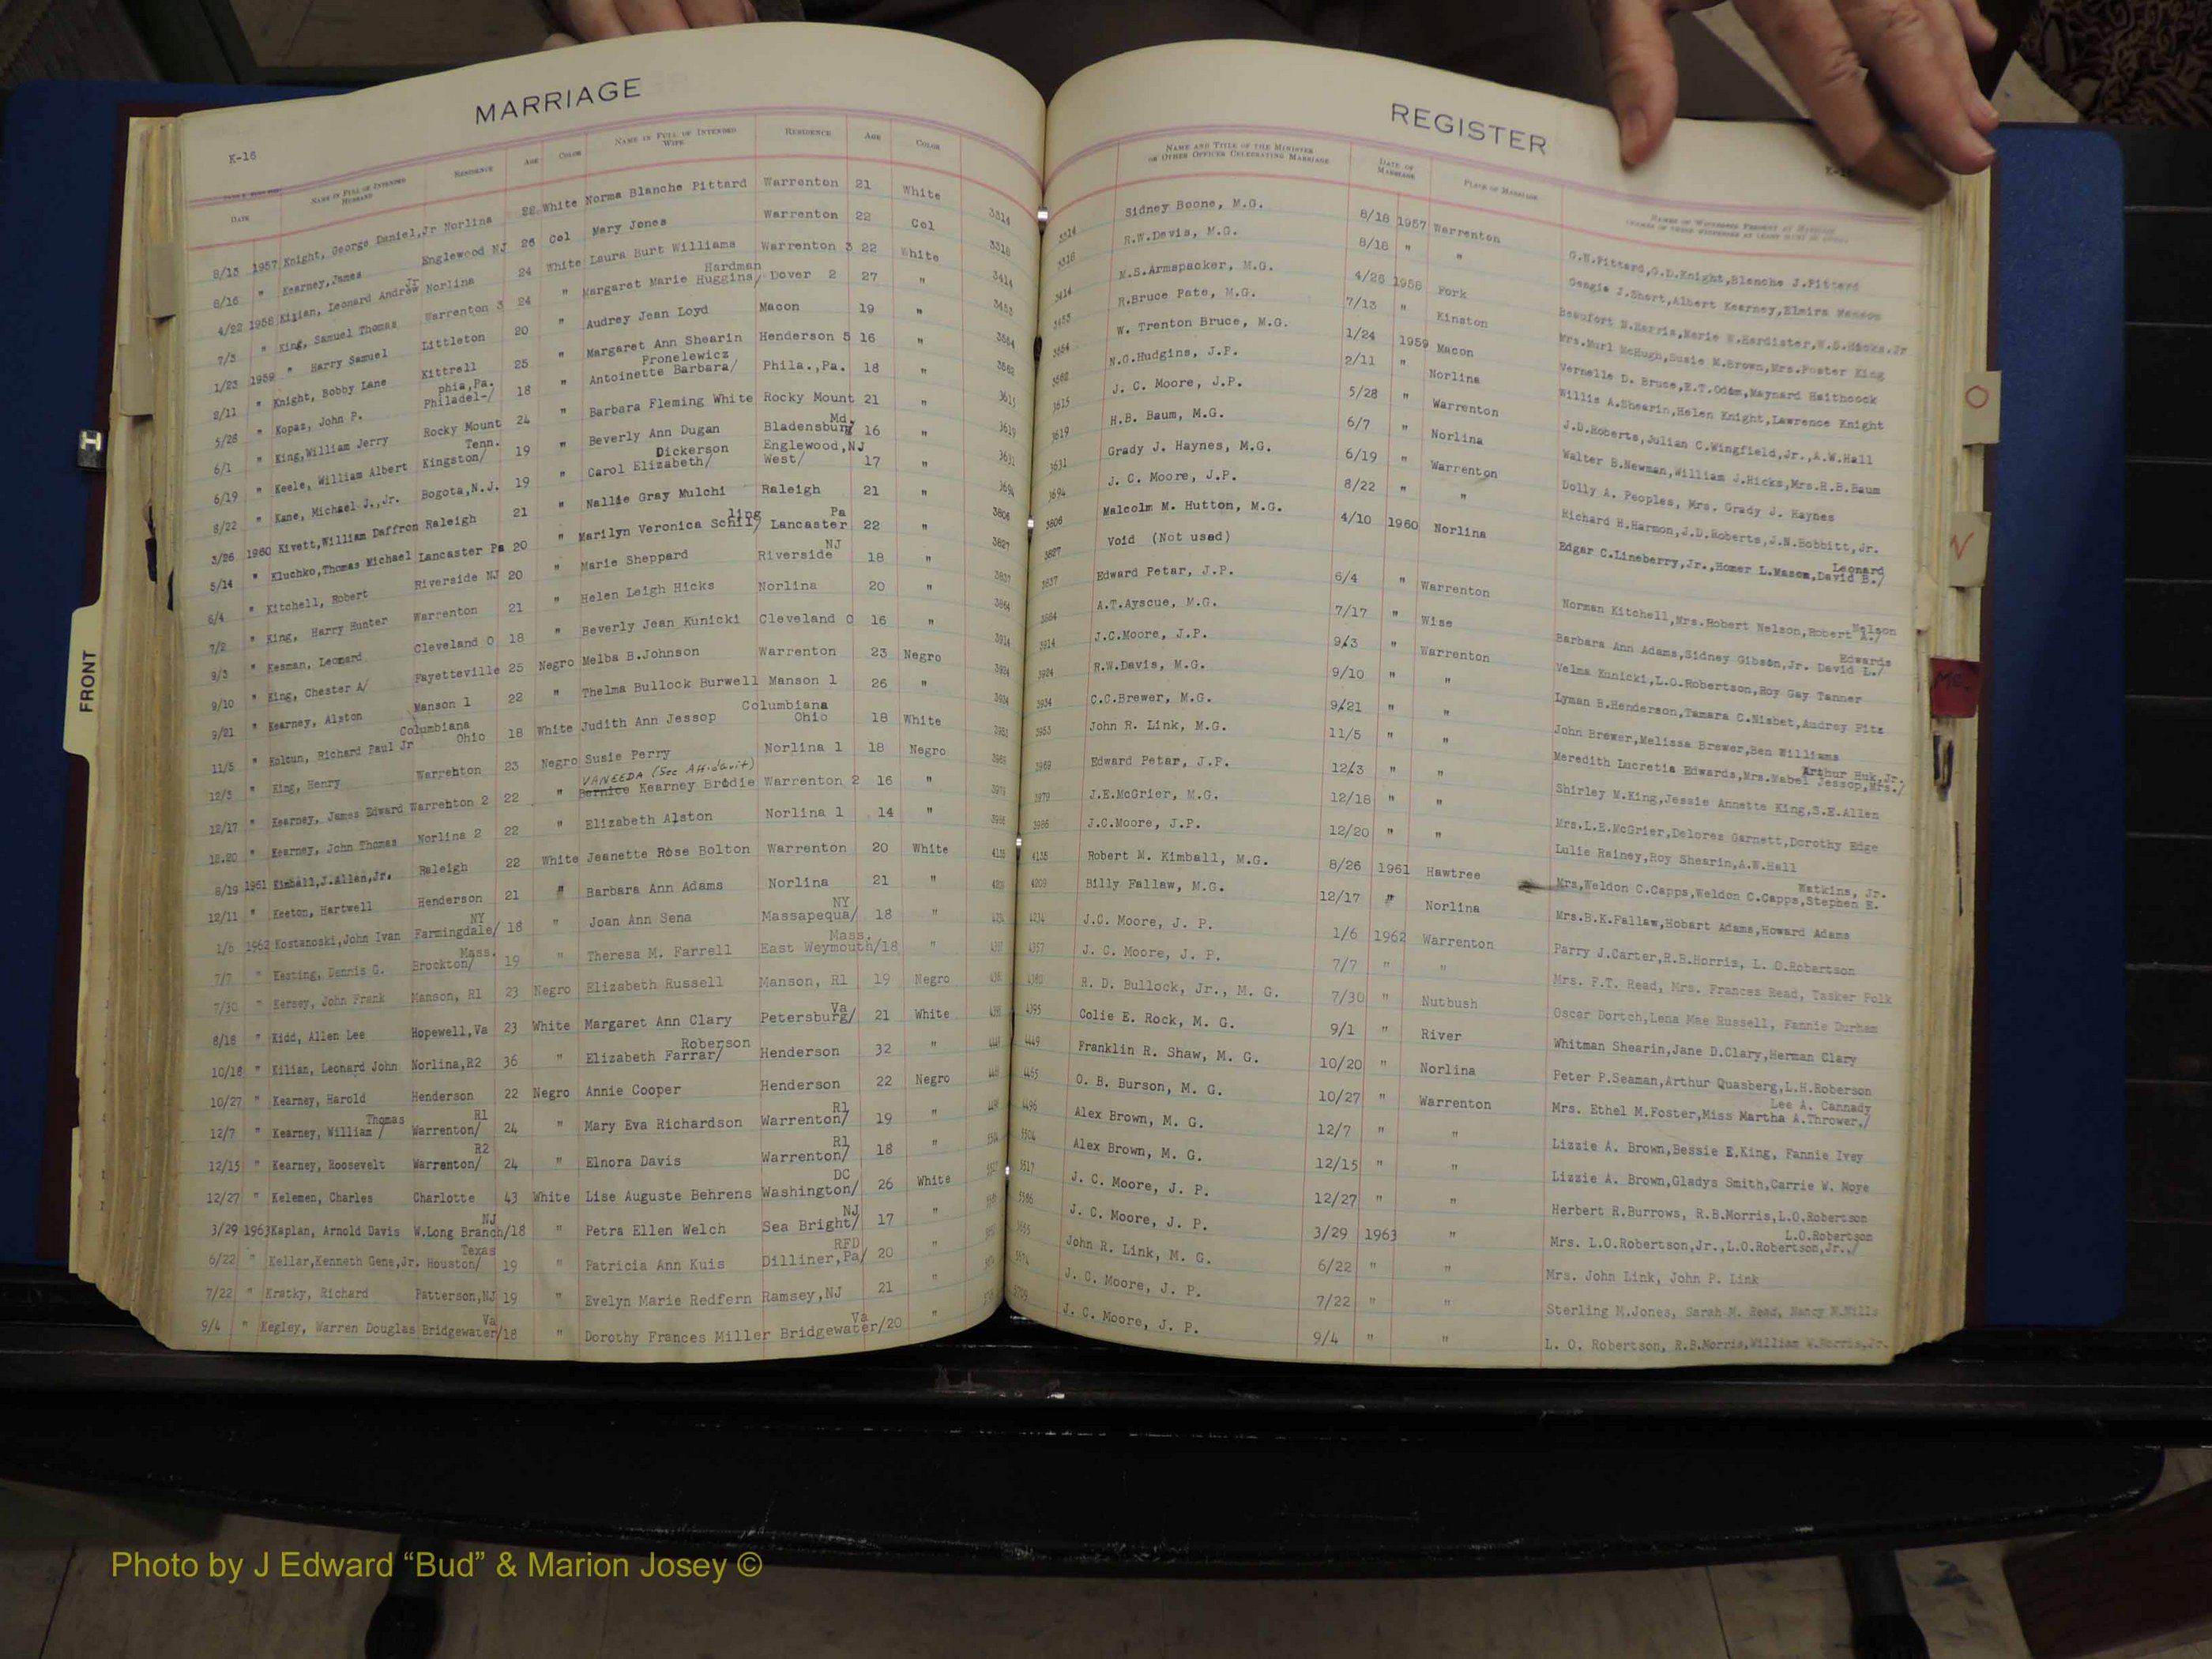 MARRIAGE
K-16
DATE NAME IN FULL OF INTENDED HUSBAND RESIDENCE AGE COLOR NAME IN FULL OF INTENDED WIFE RESIDENCE AGE COLOR
8/13 1957 Knight, George Daniel,Jr Norlina 22 White Norma Blanche Pittard Warrenton 21 White 3314
8/16 " Kearney,James Englewood NJ 26 Col Mary Jones Warrenton 22 Col 3318
4/22 1958 Kilian, Leonard Andrew Jr Norlina 24 White Laura Burt Williams Warrenton 3 22 White 3414
7/3 " King, Samuel Thomas Warrenton 3 24 " Margaret Marie Huggins/ Hardman Dover 2 27 " 3453
1/23 1959 " Harry Samuel Littleton 20 " Audrey Jean Loyd Macon 19 " 3554
2/11 " Knight, Bobby Lane Kittrell 25 " Margaret Ann Shearin Henderson 5 16 " 3562
5/28 " Kopaz, John P. Philadel-/ phia,Pa. 18 " Antoinette Barbara/ Pronelewicz Phila.,Pa. 18 " 3615
6/1 " King,William Jerry Rocky Mount 24 " Barbara Fleming White Rocky Mount 21 " 3619
6/19 " Keele, William Albert Kingston/ Tenn. 19 " Beverly Ann Dugan Bladensburg/ Md. 16 " 3631
8/22 " Kane, Michael J.,Jr. Bogota,N.J. 19 " Carol Elizabeth/ Dickerson West/ Englewood,NJ 17 " 3694
3/26 1960 Kivett,William Daffron Raleigh 21 " Nallie Gray Mulchi Raleigh 21 " 3806
5/14 " Kluchko,Thomas Michael Lancaster Pa 20 " Marilyn Veronica Schil/ ling Lancaster Pa 22 " 3827
6/4 " Kitchell, Robert Riverside NJ 20 " Marie Sheppard Riverside NJ 18 " 3837
7/2 " King, Harry Hunter Warrenton 21 " Helen Leigh Hicks Norlina 20 " 3864
9/3 " Kesman, Leonard Cleveland O 18 " Beverly Jean Kunicki Cleveland O 16 " 3914
9/10 " King, Chester A/ Fayetteville 25 Negro Melba B.Johnson Warrenton 23 Negro 3924
9/21 " Kearney, Alston Manson 1 22 " Thelma Bullock Burwell Manson 1 26 " 3934
11/5 " Kolcun, Richard Paul Jr Columbiana Ohio 18 White Judith Ann Jessop Columbiana Ohio 18 White 3953
12/3 " King, Henry Warrenton 23 Negro Susie Perry Norlina 1 18 Negro 3969
12/17 " Kearney, James Edward Warrenton 2 22 " Bernice VANEEDA (See Affidavit) Kearney Brodie Warrenton 2 16 " 3979
12.20 " Kearney, John Thomas Norlina 2 22 " Elizabeth Alston Norlina 1 14 " 3986
8/19 1961 Kimball,J.Allen,Jr. Raleigh 22 White Jeanette Rose Bolton Warrenton 20 White 4135
12/11 " Keeton, Hartwell Henderson 21 " Barbara Ann Adams Norlina 21 "
1/6 1962 Kostanoski,John Ivan Farmingdale/ NY 18 " Joan Ann Sena Massapequa/ NY 18 " 4234
7/7 " Keating, Dennis G. Brockton/ Mass. 19 " Theresa M. Farrell East Weymouth/ Mass. 18 " 4357
7/30 " Kersey, John Frank Manson, R1 23 Negro Elizabeth Russell Manson, R1 19 Negro 4380
8/18 " Kidd, Allen Lee Hopewell,Va 23 White Margaret Ann Clary Petersburg/ Va 21 White 4395
10/18 " Kilian, Leonard John Norlina,R2 36 " Elizabeth Farrar/ Roberson Henderson 32 " 4449
10/27 " Kearney, Harold Henderson 22 Negro Annie Cooper Henderson 22 Negro 4465
12/7 " Kearney, William / Thomas Warrenton/ R1 24 " Mary Eva Richardson Warrenton/ R1 19 " 4496
12/15 " Kearney, Roosevelt Warrenton/ R2 24 " Elnora Davis Warrenton/ R1 18 "
12/27 " Kelemen, Charles Charlotte 43 White Lise Auguste Behrens Washington/ DC 26 White
3/29 1963 Kaplan, Arnold Davis W.Long Branch/ NJ 18 " Petra Ellen Welch Sea Bright/ NJ 17 "
6/22 " Kellar,Kenneth Gene,Jr. Houston/ Texas 19 " Patricia Ann Kuis Dilliner,Pa/ RFD 20 "
7/22 " Kratky, Richard Patterson,NJ 19 " Evelyn Marie Redfern Ramsey,NJ 21 "
9/4 " Kegley, Warren Douglas Bridgewater/ Va 18 " Dorothy Frances Miller Bridgewater/ Va 20 "
REGISTER
NAME AND TITLE OF THE MINISTER OR OTHER OFFICER CELEBRATING MARRIAGE DATE OF MARRIAGE PLACE OF MARRIAGE NAMES OF WITNESSES PRESENT AT MARRIAGE
3314 Sidney Boone, M.G. 8/18 1957 Warrenton G.H.Pittard,G.D.Knight,Blanche J.Pittard
3318 R.W.Davis, M.G. 8/18 " " Geogia J.Short,Albert Kearney,Elmira
3414 N.S.Armspacker, M.G. 4/26 1958 Fork Beaufort N.Harris,Marie W.Hardister,W.S.Hicks.Jr
3453 R.Bruce Pate, M.G. 7/13 " Kinston Mrs.Murl McHugh,Susie M.Brown,Mrs.Foster King
3554 W. Trenton Bruce, M.G. 1/24 1959 Macon Vernelle D. Bruce,E.T.Odom,Maynard Haithcock
3562 N.G.Hudgins, J.P. 2/11 " Norlina Willis A.Shearin,Helen Knight,Lawrence Knight
3615 J. C. Moore, J.P. 5/28 " Warrenton J.D.Roberts,Julian C.Wingfield,Jr.,A.W.Hall
3619 H.B. Baum, M.G. 6/7 " Norlina Walter B.Newman,William J.Hicks,Mrs.H.B.Baum
3631 Grady J. Haynes, M.G. 6/19 " Warrenton Dolly A. Peoples, Mrs. Grady J. Haynes
3694 J. C. Moore, J.P. 8/22 " " Richard H.Harmon,J.D.Roberts,J.N.Bobbitt,Jr.
3806 Malcolm M. Hutton, M.G. 4/10 1960 Norlina Edgar C.Lineberry,Jr.,Homer L.Mason,David B./ Leonard
3827 Void (Not used)
3837 Edward Petar, J.P. 6/4 " Warrenton Norman Kitchell,Mrs.Robert Nelson,Robert A./ Nelson
3864 A.T.Ayscue, M.G. 7/17 " Wise Barbara Ann Adams,Sidney Gibson,Jr. David L./ Edwards
3914 J.C.Moore, J.P. 9/3 " Warrenton Velma Kunicki,L.O.Robertson,Roy Gay Tanner
3924 R.W.Davis, M.G. 9/10 " " Lyman B.Henderson,Tamara C.Nisbet,Audrey Fitz
3934 C.C.Brewer, M.G. 9/21 " " John Brewer,Melissa Brewer,Ben Williams
3953 John R. Link, M.G. 11/5 " " Meredith Lucretia Edwards,Mrs.Mabel Jessop,Mrs./ Arthur Huk,Jr.
3969 Edward Petar, J.P. 12/3 " " Shirley M.King,Jessie Annette King,S.E.Allen
3979 J.E.McGrier, M.G. 12/18 " " Mrs.L.E.McGrier,Delores Garnett,Dorothy Edge
3986 J.C.Moore, J.P. 12/20 " " Lulie Rainey,Roy Shearin,A.W.Hall
4135 Robert M. Kimball, M.G. 8/26 1961 Hawtree Mrs,Weldon C.Capps,Weldon C.Capps,Stephen E. Watkins, Jr.
4209 Billy Fallaw, M.G. 12/17 " Norlina Mrs.B.K.Fallaw,Hobart Adams,Howard Adams
4234 J.C. Moore, J. P. 1/6 1962 Warrenton Parry J.Carter,R.B.Morris, L. O.Robertson
4357 J. C. Moore, J. P. 7/7 " " Mrs. F.T. Read, Mrs. Frances Read, Tasker Polk
4380 R. D. Bullock, Jr., M. G. 7/30 " Nutbush Oscar Dortch,Lena Mae Russell, Fannie Durham
4395 Colie E. Rock, M. G. 9/1 " River Whitman Shearin,Jane D.Clary,Herman Clary
4449 Franklin R. Shaw, M. G. 10/20 " Norlina Peter P.Seaman,Arthur Quasberg,L.H.Roberson
4465 O. B. Burson, M. G. 10/27 " Warrenton Mrs. Ethel M.Foster,Miss Martha A.Thrower,/ Lee A. Cannady
4496 Alex Brown, M. G. 12/7 " " Lizzie A. Brown,Bessie E.King, Fannie Ivey
5504 Alex Brown, M. G. 12/15 " " Lizzie A. Brown,Gladys Smith,Carrie W. Moye
5517 J. C. Moore, J. P. 12/27 " " Herbert R.Burrows, R.B.Morris,L.O.Robertson
5586 J. C. Moore, J. P. 3/29 1963 " Mrs. L.O.Robertson,Jr.,L.O.Robertson,Jr.,/ L.O.Robertson
John R. Link, M. G. 6/22 " " Mrs. John Link, John P. Link
J. C. Moore, J. P. 7/22 " " Sterling M.Jones, Sarah M. Read, Nancy N.Mills
J. C. Moore, J. P. 9/4 " " L. O. Robertson, R.B.Morris,William W.Morris,Jr.
FRONT
H
O
N
Mc.
Photo by J Edward “Bud” & Marion Josey ©